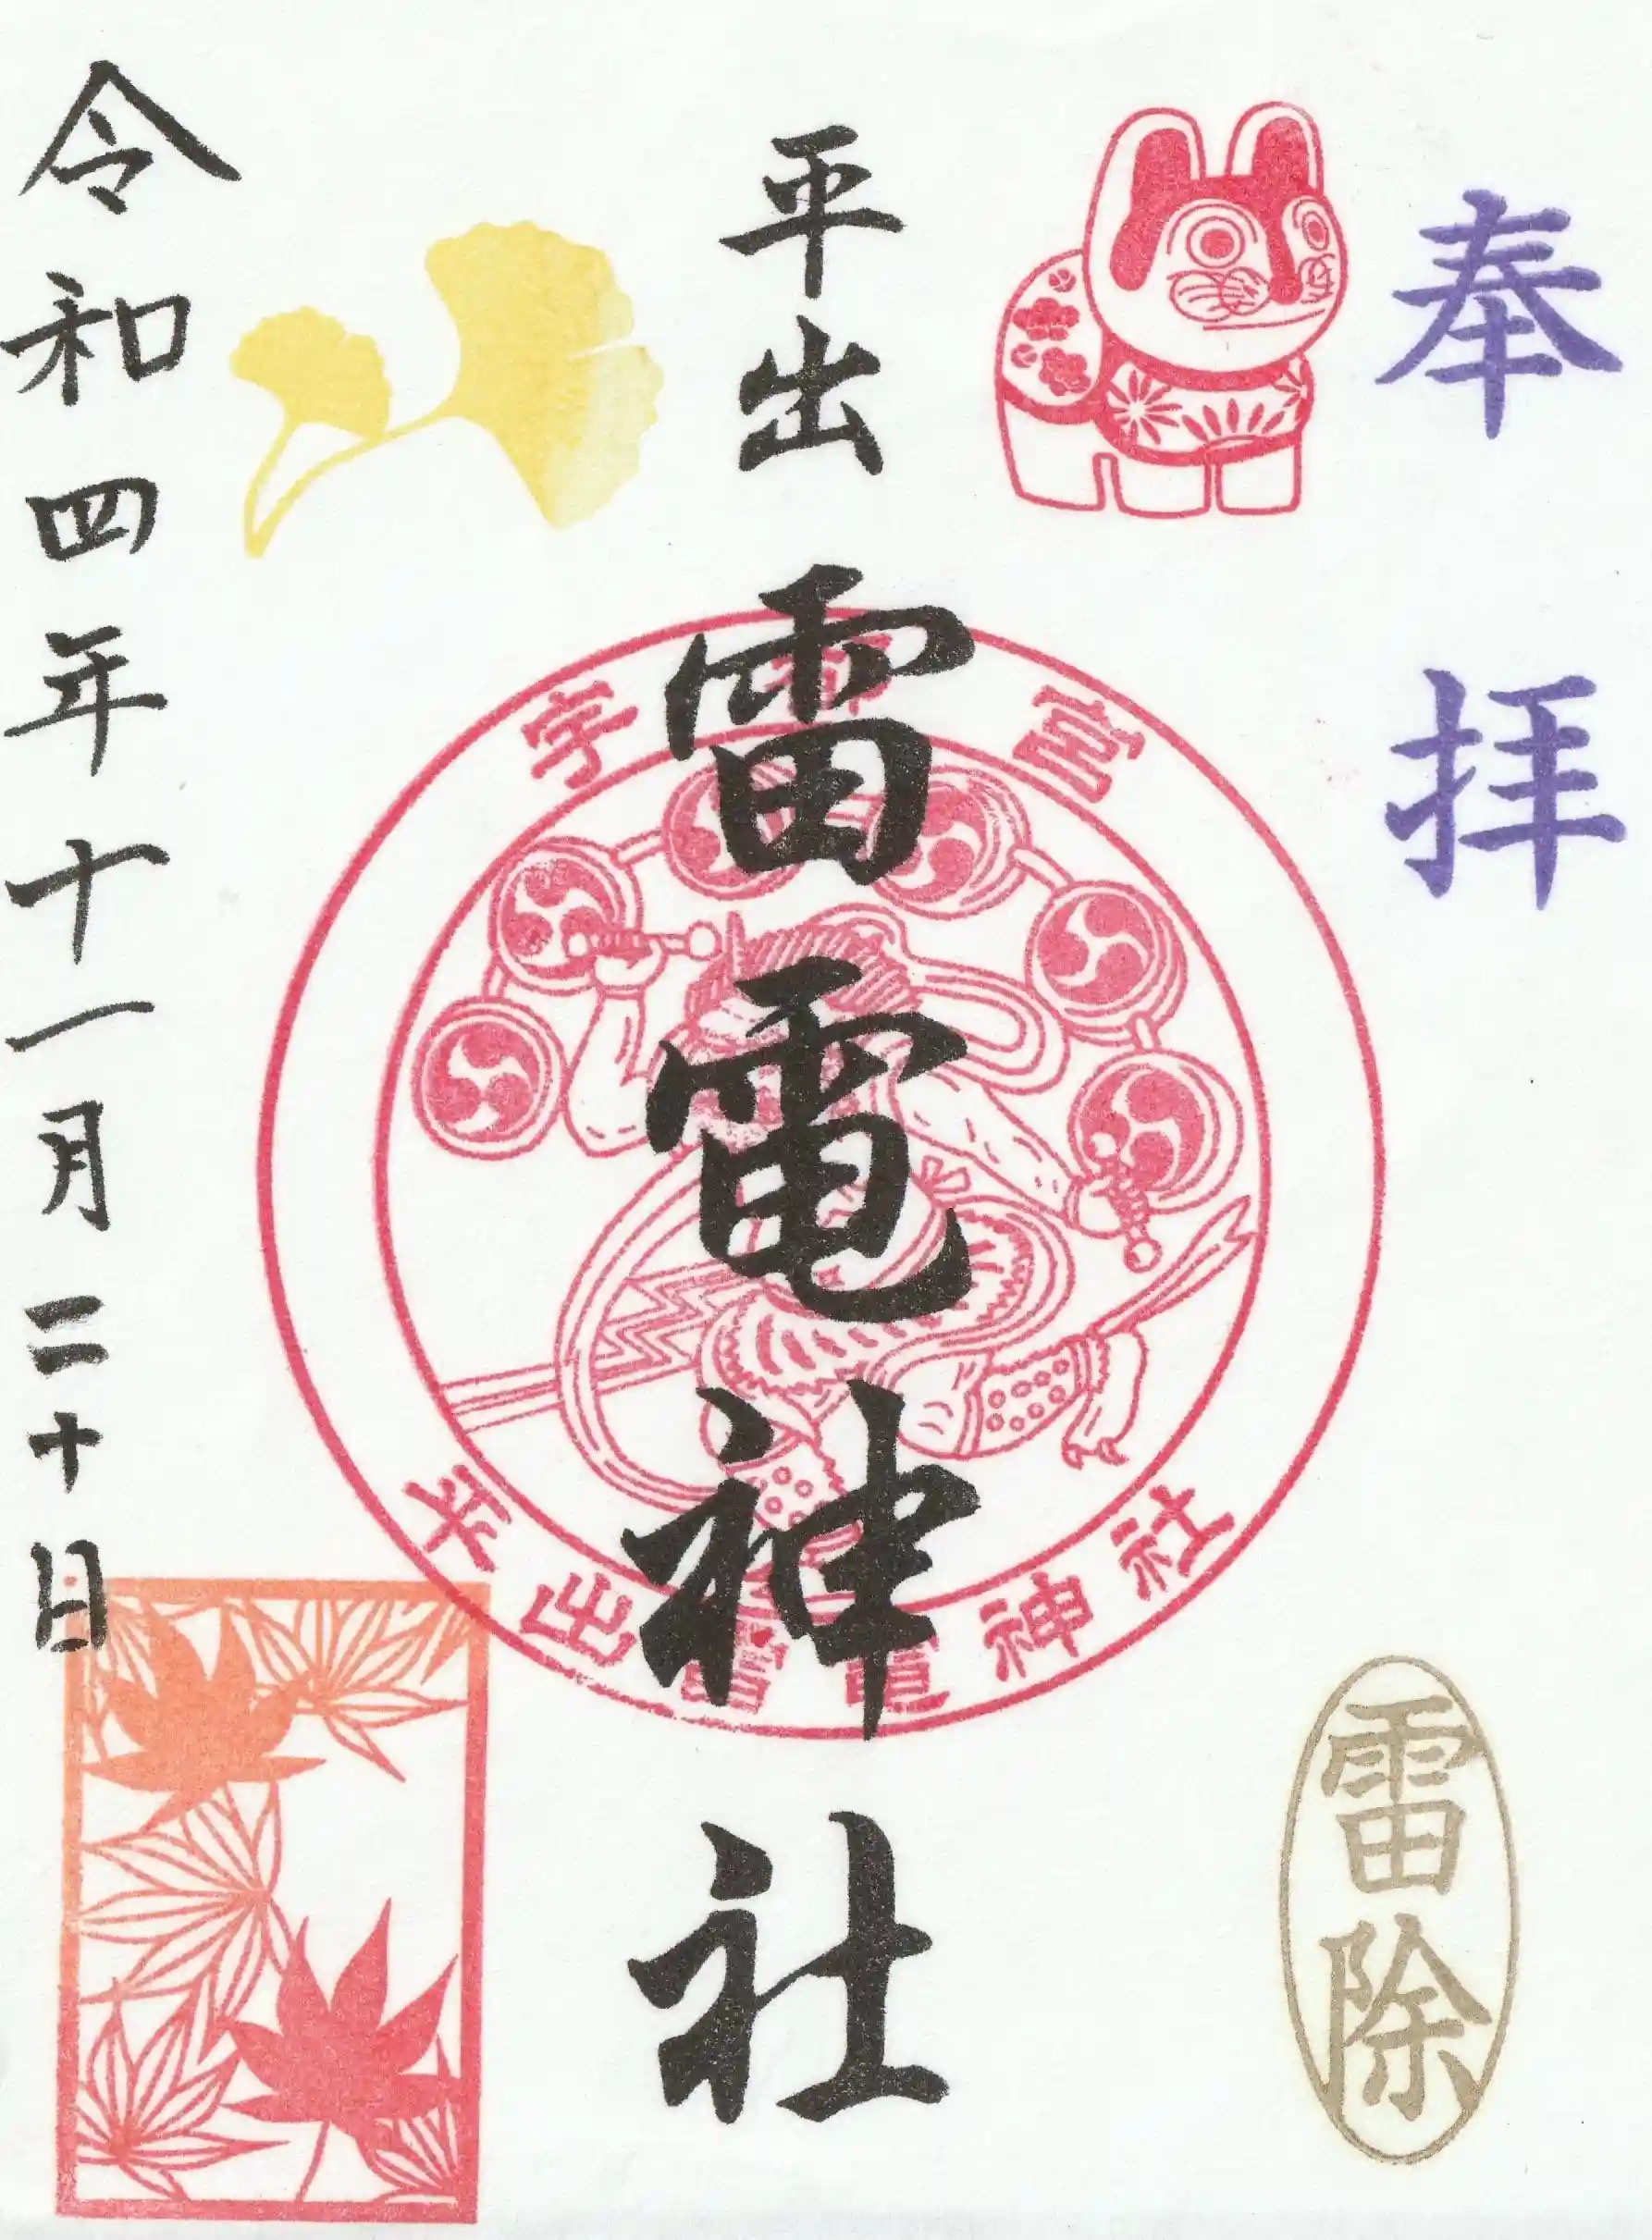 奉拝
雷除
平出雷電神社
宇都宮
平出雷電神社
令和四年十一月二十日